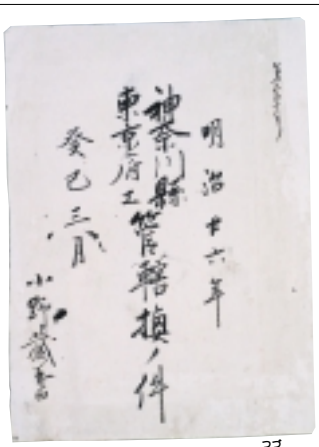 明治廿六年
神奈川縣
東京府エ
管轄換ノ件
癸巳三月
小野